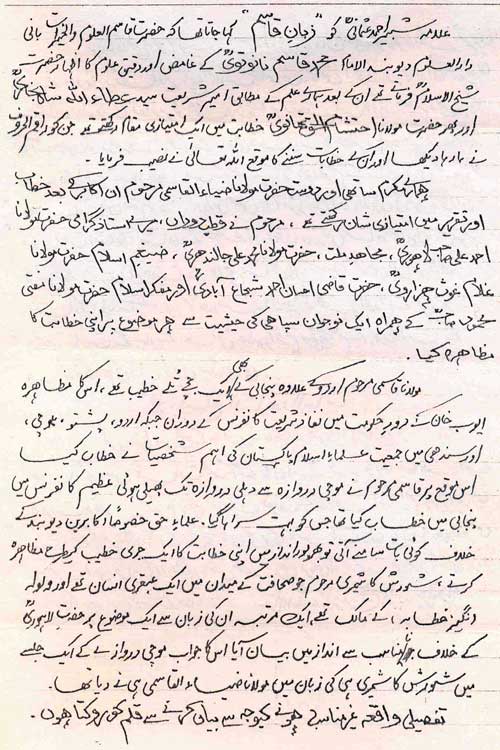 علامہ شبیر احمد عثمانیؒ کو "زبانِ قاسم" کہا جاتا تھا کہ حضرت قاسم العلوم والخیرات بانی
دارالعلوم دیوبند الامام محمد قاسم نانوتویؒ کے غامض اور دقیق علوم کا اظہار حضرت
شیخ الاسلامؒ فرماتے تھے ان کے بعد ہمارے علم کے مطابق امیر شریعت سید عطاء اللہ شاہ بخاریؒ
اور پھر حضرت مولانا احتشام الحق تھانویؒ خطابت میں ایک امتیازی مقام رکھتے تھے جن کو راقم الحروف
نے بارہا دیکھا اور ان کے خطابات سننے کا موقع اللہ تعالیٰ نے نصیب فرمایا۔
ہمارے مکرم ساتھی اور دوست حضرت مولانا ضیاء القاسمی مرحوم ان اکابر کے بعد خطاب
اور تقریر میں امتیازی شان رکھتے تھے، مرحوم نے قطبِ دوراں، میرے استاذ گرامی حضرت مولانا
احمد علی صاحب لاہوریؒ، مجاھد ملت، حضرت مولانا محمد علی جالندھریؒ، ضیغم اسلام حضرت مولانا
غلام غوث ہزارویؒ، حضرت قاضی احسان احمد شجاع آبادیؒ اور مفکر اسلام حضرت مولانا مفتی
محمود صاحبؒ کے ہمراہ ایک نوجوان سپاھی کی حیثیت سے ہر موضوع پر اپنی خطابت کا
مظاہرہ کیا۔
مولانا قاسمی مرحوم اردو کے علاوہ پنجابی کے بھی ایک جچے تُلے خطیب تھے، اس کا مظاہرہ
ایوب خان کے دورِ حکومت میں نفاذ شریعت کانفرنس کے دوران جبکہ اردو، پشتو، بلوچی،
اور سندھی میں جمعیت علماء اسلام پاکستان کی اہم شخصیات نے خطاب کیا
اس موقع پر قاسمی مرحوم نے موچی دروازہ سے دہلی دروازہ تک پھیلی ہوئی عظیم کانفرنس میں
پنجابی میں خطاب کیا تھا جس کو بہت سراہا گیا۔ علماء حق خصوصاً اکابرین دیوبند کے
خلاف کوئی بات سامنے آتی تو بھرپور انداز میں اپنی خطابت کا ایک جری خطیب کی طرح مظاھرہ
کرتے، شورش کاشمیری مرحوم جو صحافت کے میدان میں ایک عبقری انسان تھے اور ولولہ
انگیز خطابہ، کے مالک تھے، ایک مرتبہ ان کی زبان سے ایک موضوع پر حضرت لاہوریؒ
کے خلاف نامناسب سے انداز میں بیان آیا اس کا جواب موچی دروازے کے ایک جلسے
میں شورش کاشمیری ہی کی زبان میں مولانا ضیاء القاسمی ہی نے دیا تھا۔
تفصیلی واقعہ غیر مناسب ہونے کیوجہ سے بیان کرنے سے قلم کو روکتا ہوں۔